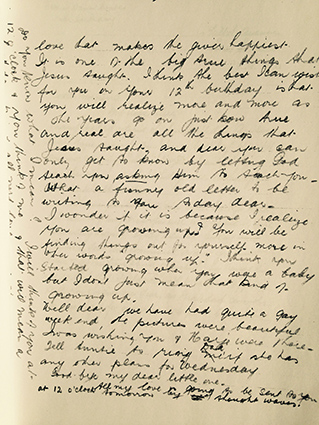 love that makes the giver happiest.
It is one of the big true things that
Jesus taught. I think the best I can wish
for you on your 12th birthday is that
you will realize more and more as
the years go on just how true
and real are all the things that
Jesus taught, and dear you can
only get to know by letting God
teach you asking Him to teach you.
What a funny old letter to be
writing to you today dear.
I wonder if it is because I realize
you are growing up? You will be
finding things out for yourself more in
other words growing up. I think you
started growing when you were a baby
but I dont just mean that kind of
growing up.
Well dear we have had quite a gay
week end, the pictures were beautiful
I was wishing you & were there
Tell Auntie to ring if she has
any other plans for Wednesday
God bye my dear little one.
All my love is going to be sent to you
at 12 o'clock tomorrow by thought waves.
do you know what I mean
12 o'clock you think of me &